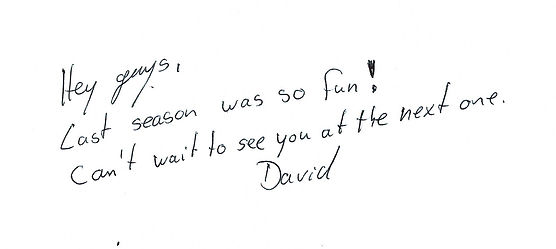 Hey guys,
Last season was so fun!
Can't wait to see you at the next one.
David